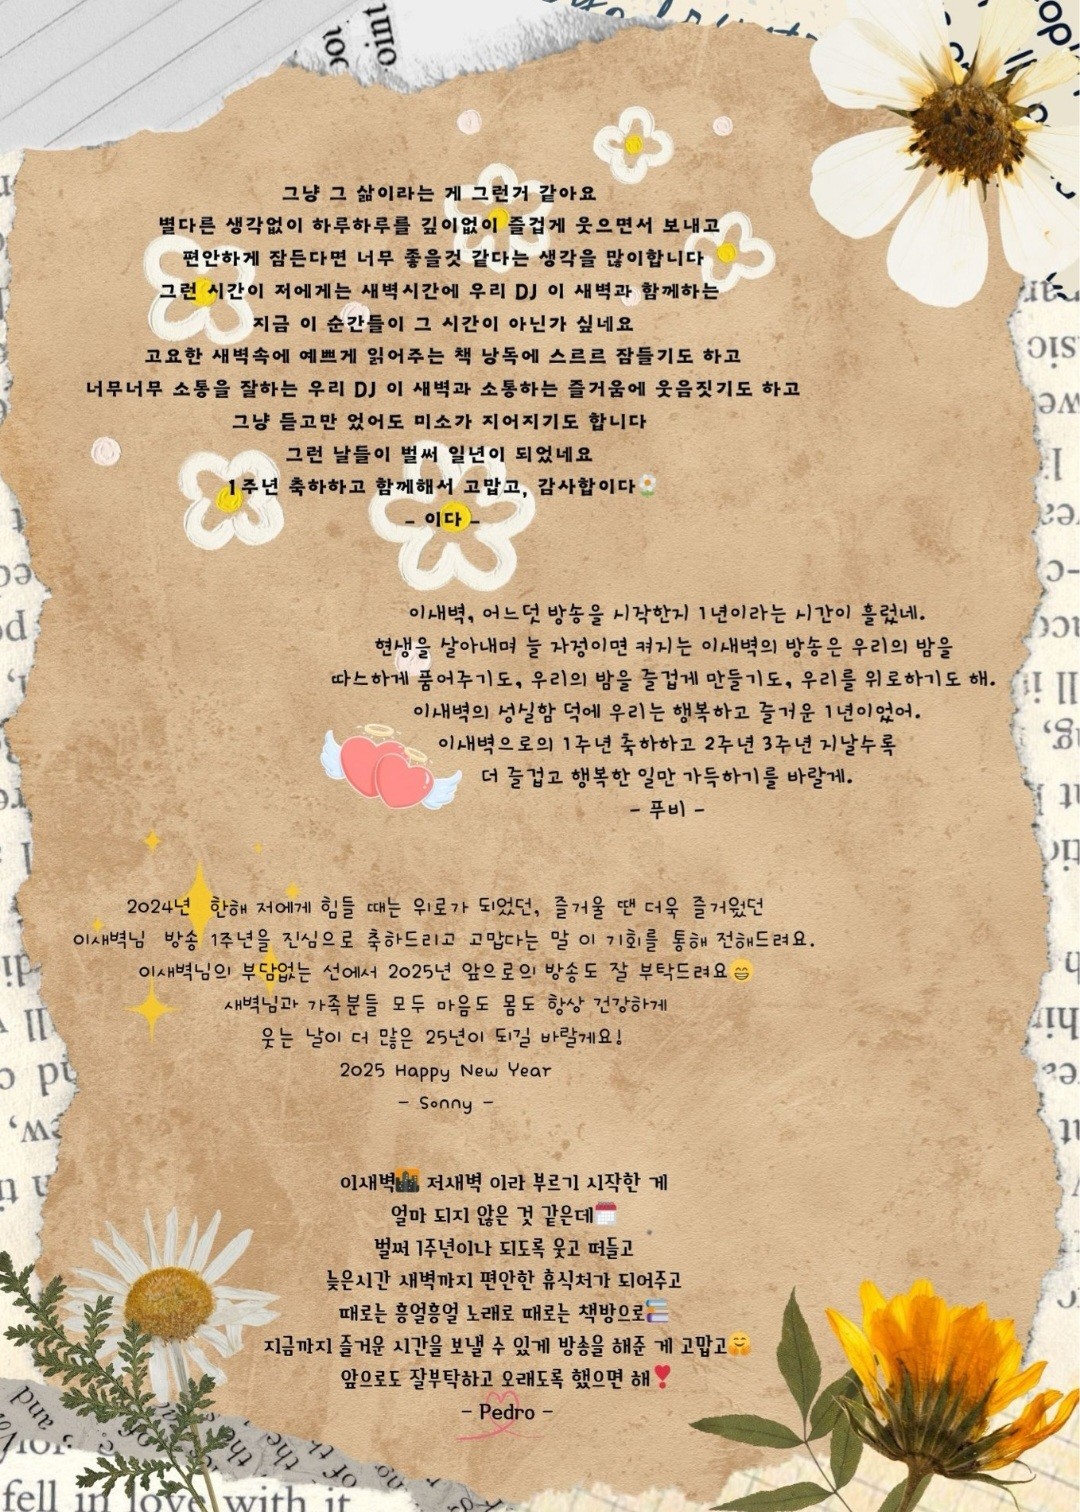 그냥 그 삶이라는 게 그런거 같아요
별다른 생각없이 하루하루를 깊이없이 즐겁게 웃으면서 보내고
편안하게 잠든다면 너무 좋을것 같다는 생각을 많이합니다
그런 시간이 저에게는 새벽시간에 우리 DJ 이 새벽과 함께하는
지금 이 순간들이 그 시간이 아닌가 싶네요
고요한 새벽속에 예쁘게 읽어주는 책 낭독에 스르르 잠들기도 하고
너무너무 소통을 잘하는 우리 DJ 이 새벽과 소통하는 즐거움에 웃음짓기도 하고
그냥 듣고만 었어도 미소가 지어지기도 합니다
그런 날들이 벌써 일년이 되었네요
1주년 축하하고 함께해서 고맙고, 감사합이다
- 이다 -
이새벽, 어느덧 방송을 시작한지 1년이라는 시간이 흘렀네.
현생을 살아내며 늘 자정이면 켜지는 이새벽의 방송은 우리의 밤을
따스하게 품어주기도, 우리의 밤을 즐겁게 만들기도, 우리를 위로하기도 해.
이새벽의 성실함 덕에 우리는 행복하고 즐거운 1년이었어.
이새벽으로의 1주년 축하하고 2주년 3주년 지날수록
더 즐겁고 행복한 일만 가득하기를 바랄게.
- 푸비 -
2024년 한해 저에게 힘들 때는 위로가 되었던, 즐거울 땐 더욱 즐거웠던
이새벽님 방송 1주년을 진심으로 축하드리고 고맙다는 말 이 기회를 통해 전해드려요.
이새벽님의 부담없는 선에서 2025년 앞으로의 방송도 잘 부탁드려요😄
새벽님과 가족분들 모두 마음도 몸도 항상 건강하게
웃는 날이 더 많은 25년이 되길 바랄게요!
2025 Happy New Year
- Sonny -
이새벽🌆 저새벽 이라 부르기 시작한 게
얼마 되지 않은 것 같은데🗓️
벌써 1주년이나 되도록 웃고 떠들고
늦은시간 새벽까지 편안한 휴식처가 되어주고
때로는 흥얼흥얼 노래로 때로는 책방으로📚
지금까지 즐거운 시간을 보낼 수 있게 방송을 해준 게 고맙고🤗
앞으로도 잘부탁하고 오래도록 했으면 해❣️
- Pedro -
fell in love with it